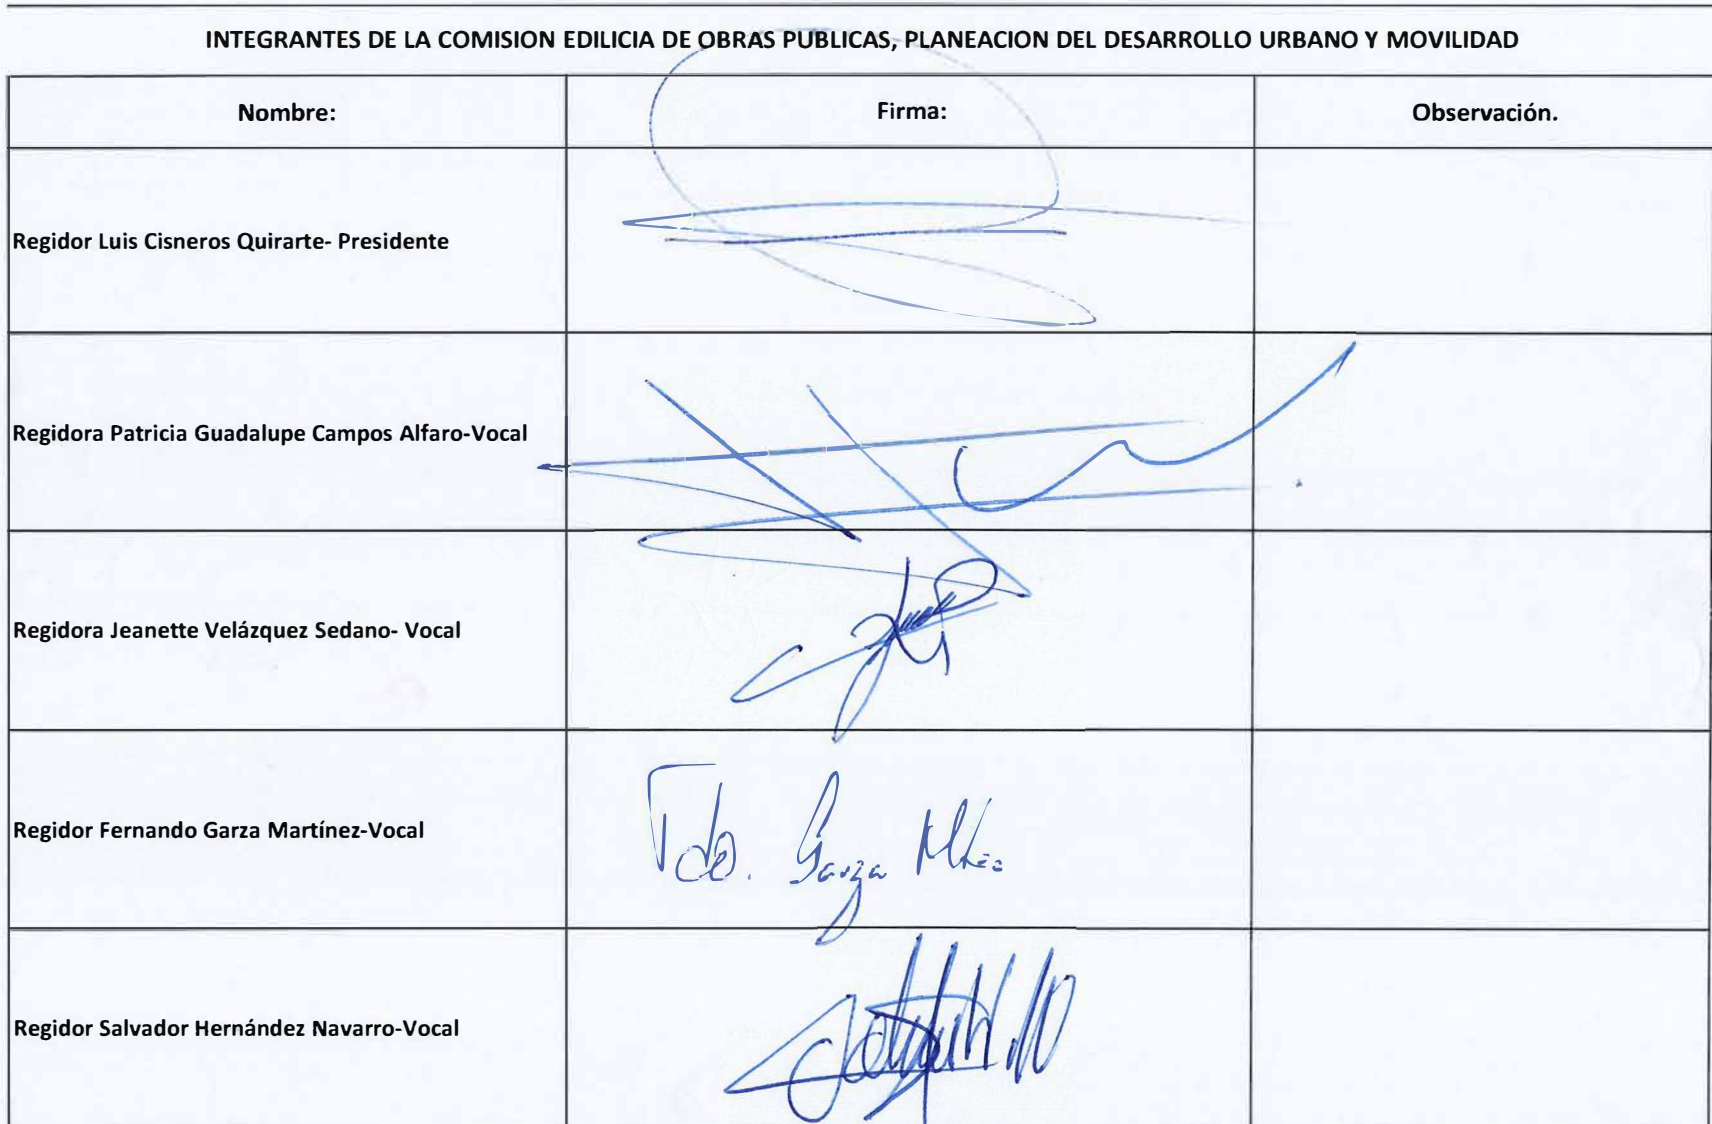 INTEGRANTES DE LA COMISION EDILICIA DE OBRAS PUBLICAS, PLANEACION DEL DESARROLLO URBANO Y MOVILIDAD
Nombre: Firma: Observación.
Regidor Luis Cisneros Quirarte- Presidente
Regidora Patricia Guadalupe Campos Alfaro-Vocal
Regidora Jeanette Velázquez Sedano- Vocal
Regidor Fernando Garza Martínez-Vocal Fdo. Garza Mtez
Regidor Salvador Hernández Navarro-Vocal